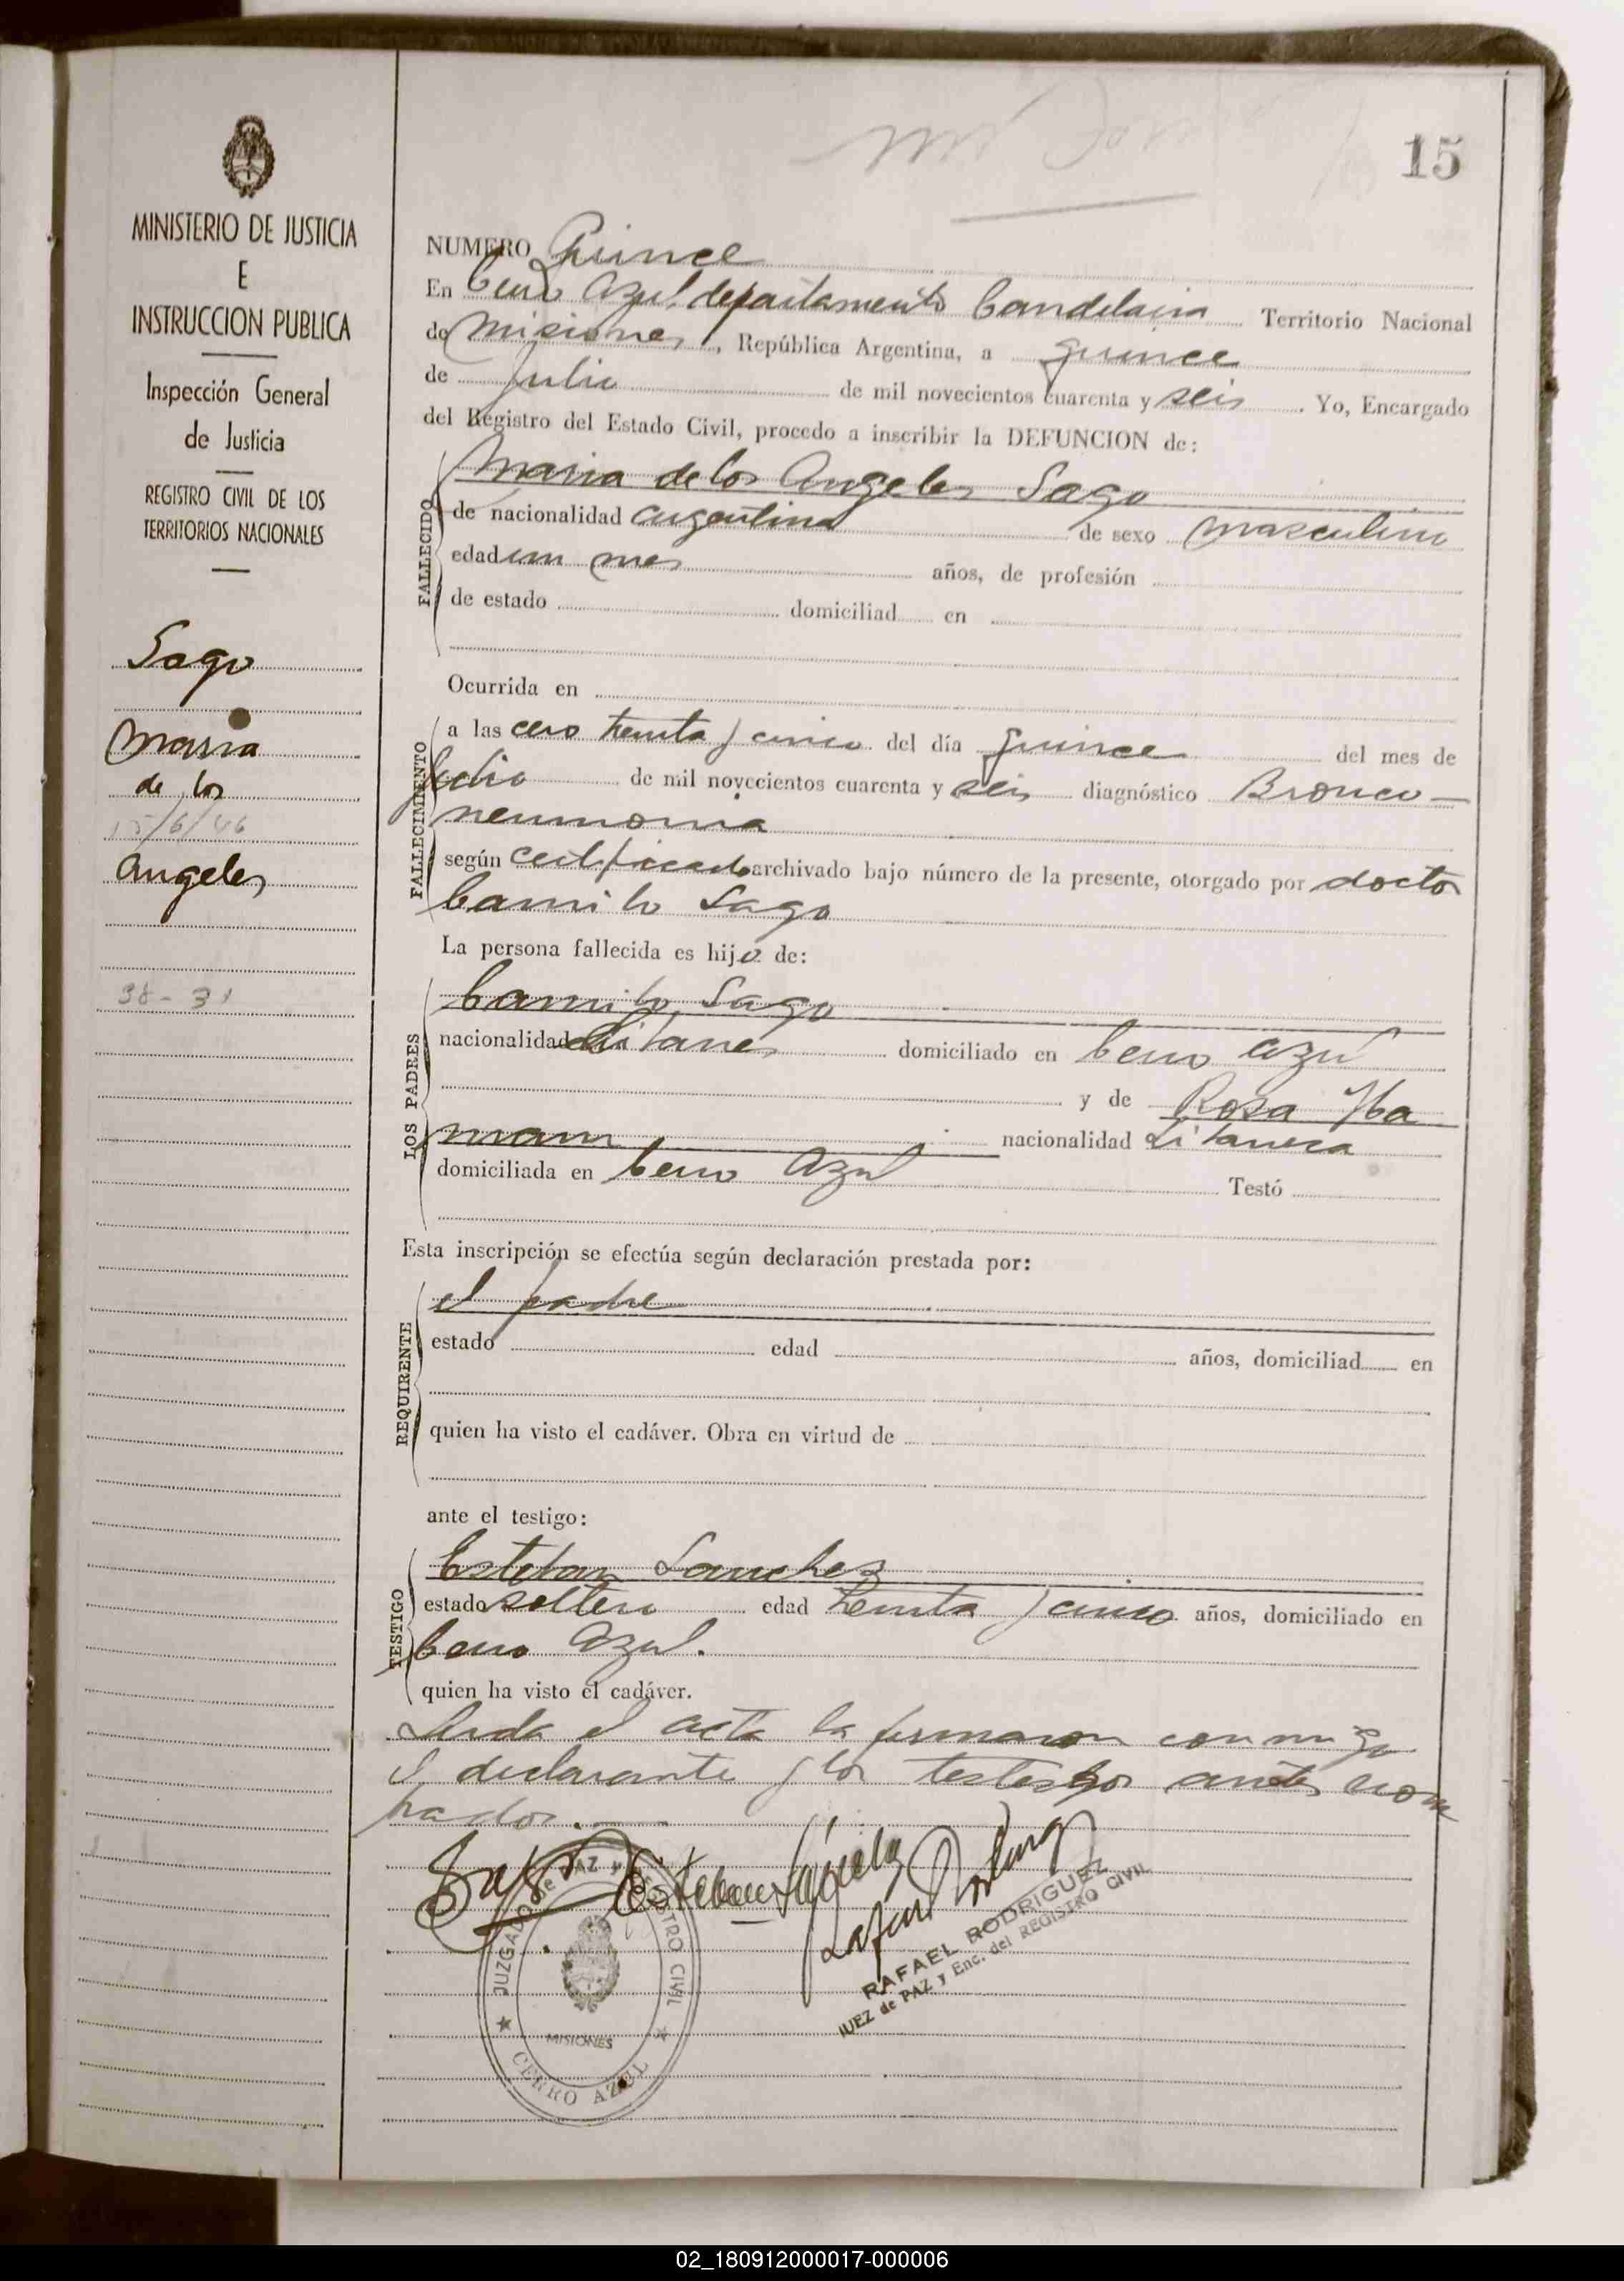 15
MINISTERIO DE JUSTICIA
E
INSTRUCCION PUBLICA
Inspección General
de Justicia
REGISTRO CIVIL DE LOS
TERRITORIOS NACIONALES
Sago
Maria
de los
15/6/46
Angeles
38-31
NUMERO Quince
En Cerro Azul departamento Candelaria Territorio Nacional
de Misiones, República Argentina, a quince
de Julio de mil novecientos cuarenta y seis. Yo, Encargado
del Registro del Estado Civil, procedo a inscribir la DEFUNCION de:
FALLECIDO
Maria de los Angeles Sago
de nacionalidad argentina de sexo masculino
edad un mes años, de profesión
de estado domiciliad en
Ocurrida en
FALLECIMIENTO
a las cero treinta y cinco del día quince del mes de
Julio de mil novecientos cuarenta y seis diagnóstico Bronco-
neumonia
según certificado archivado bajo número de la presente, otorgado por doctor
Camilo Sago
La persona fallecida es hijo de:
LOS PADRES
Camilo Sago
nacionalidad domiciliado en Cerro Azul
y de Rosa
nacionalidad
domiciliada en Cerro Azul Testó
Esta inscripción se efectúa según declaración prestada por:
REQUIRENTE
el padre
estado edad años, domiciliad en
quien ha visto el cadáver. Obra en virtud de
ante el testigo:
TESTIGO
Esteban Sanchez
estado soltero edad treinta y cinco años, domiciliado en
Cerro Azul.
quien ha visto el cadáver.
Leida el acta la firmaron conmigo
el declarante y los testigos antes nom
brados.
JUZGADO de PAZ y REGISTRO CIVIL
MISIONES
CERRO AZUL
RAFAEL RODRIGUEZ
JUEZ de PAZ y Enc. del REGISTRO CIVIL
02_180912000017-000006